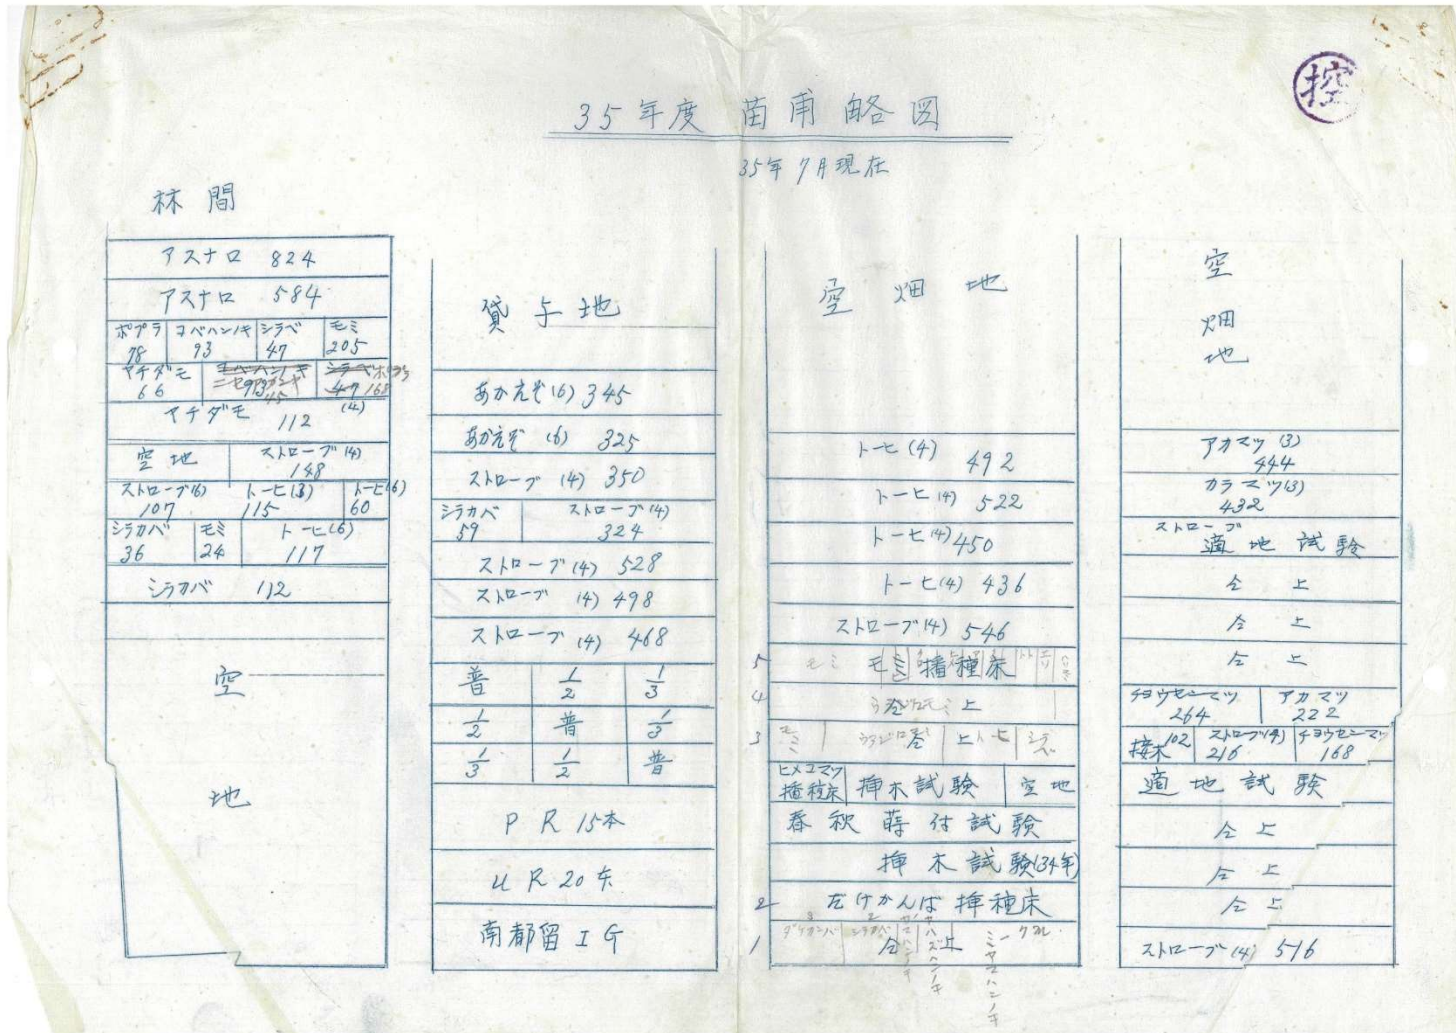 控
35年度 苗甫略図
35年7月現在
林間
アスナロ 824
アスナロ 584
ポプラ 78 コバハンノキ 93 シラベ 47 モミ 205
ヤチダモ 66
ヤチダモ (4) 112
空地 ストローブ(4) 148
ストローブ(6) 107 トーヒ(3) 115 トーヒ(6) 60
シラカバ 36 モミ 24 トーヒ(6) 117
シラカバ 112
空地
貸与地
あかえぞ(6) 345
あかえぞ(6) 325
ストローブ(4) 350
シラカバ 59 ストローブ(4) 324
ストローブ(4) 528
ストローブ(4) 498
ストローブ(4) 468
普 1/2 1/3
1/2 普 1/3
1/3 1/2 普
P R 15本
U R 20本
南都留 I G
空畑地
トーヒ(4) 492
トーヒ(4) 522
トーヒ(4) 450
トーヒ(4) 436
ストローブ(4) 546
5 モミ モミ 播種床
4 仝上
3 モミ 仝上 トヒ シラベ
ヒメコマツ 播種床 挿木試験 空地
春秋蒔付試験
挿木試験(34年)
2 だけかんば 挿種床
1 ダケカンバ シラカバ 仝上 ミヤマハンノキ
空畑地
アカマツ(3) 444
カラマツ(3) 432
ストローブ 適地試験
仝上
仝上
仝上
チョウセンマツ 264 アカマツ 222
接木 102 ストローブ(4) 216 チョウセンマツ 168
適地試験
仝上
仝上
仝上
ストローブ(4) 516